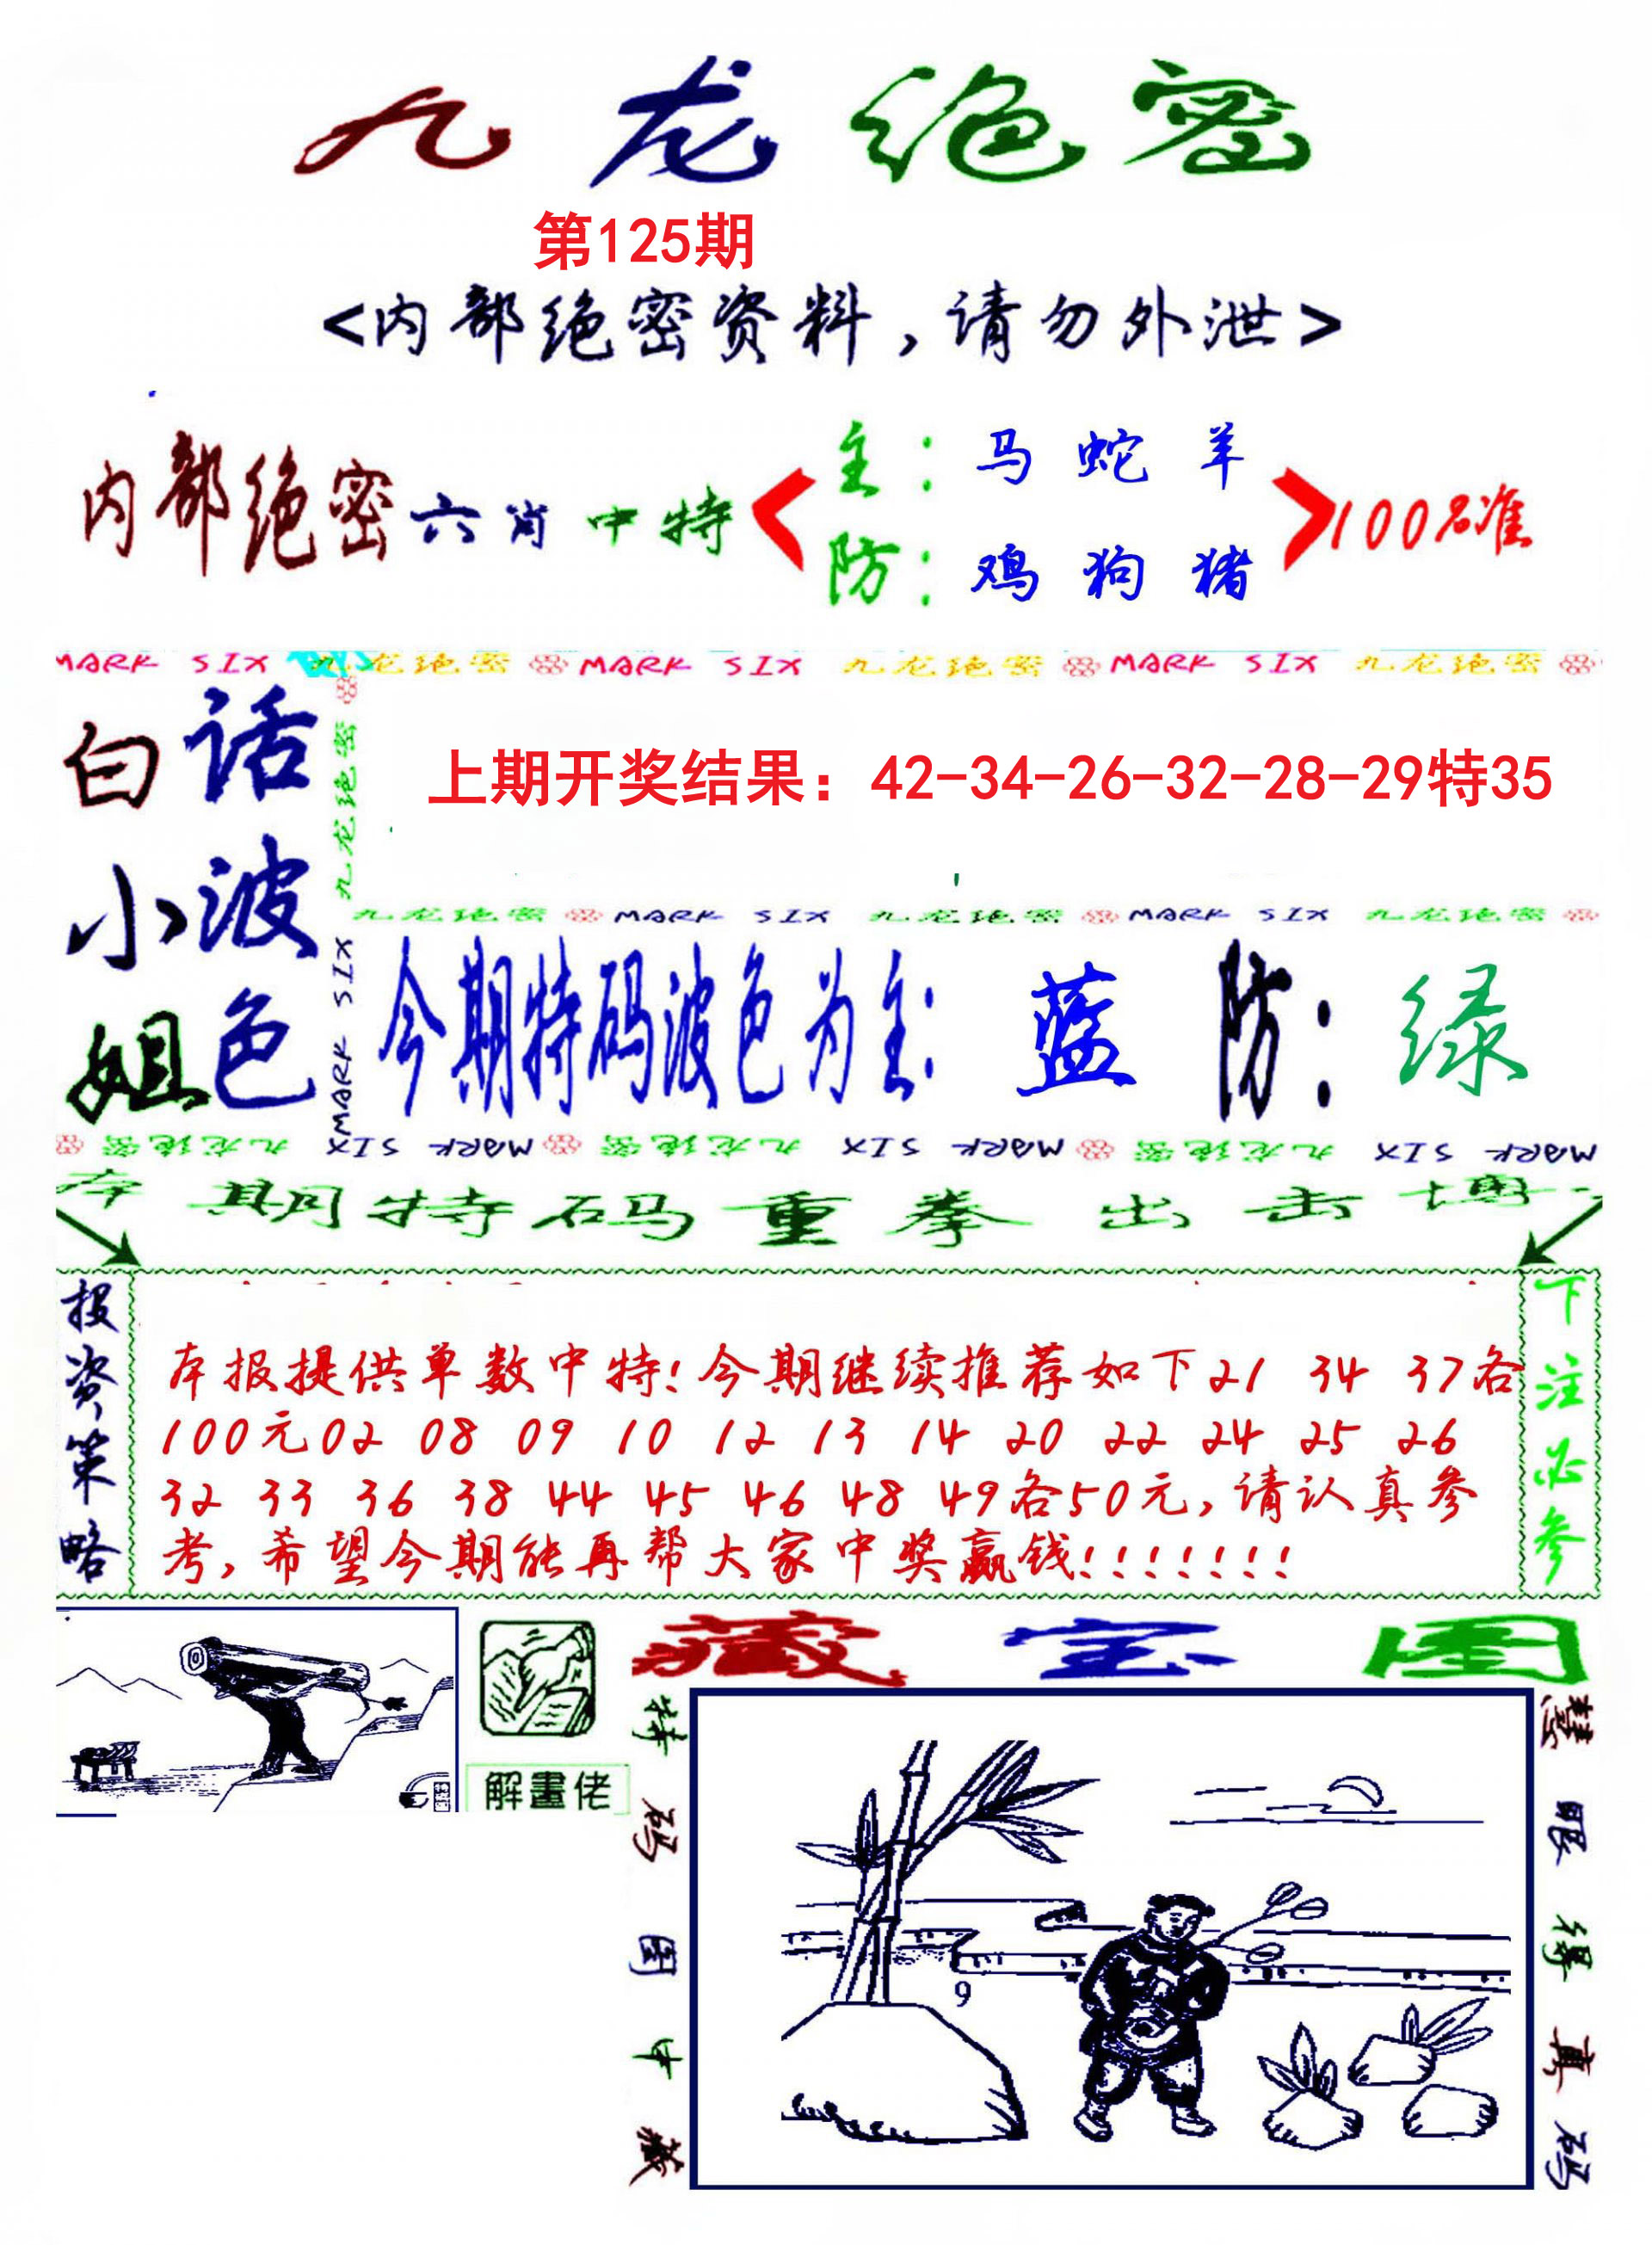 九龙绝密
第125期
<内部绝密资料,请勿外泄>
内部绝密六肖中特
主:马 蛇 羊
防:鸡 狗 猪
100%准
MARK SIX 九龙绝密 MARK SIX 九龙绝密 MARK SIX 九龙绝密
白小姐
话波色
九龙绝密
MARK SIX
上期开奖结果:42-34-26-32-28-29特35
九龙绝密 MARK SIX 九龙绝密 MARK SIX 九龙绝密
今期特码波色为主:蓝 防:绿
九龙绝密 MARK SIX 九龙绝密 MARK SIX 九龙绝密 MARK SIX
本期特码重拳出击博
投资策略
本报提供单数中特!今期继续推荐如下21 34 37各
100元02 08 09 10 12 13 14 20 22 24 25 26
32 33 36 38 44 45 46 48 49各50元,请认真参
考,希望今期能再帮大家中奖赢钱!!!!!!!
下注必参
解畫佬
藏宝图
特码图中藏
9
慧眼得真码